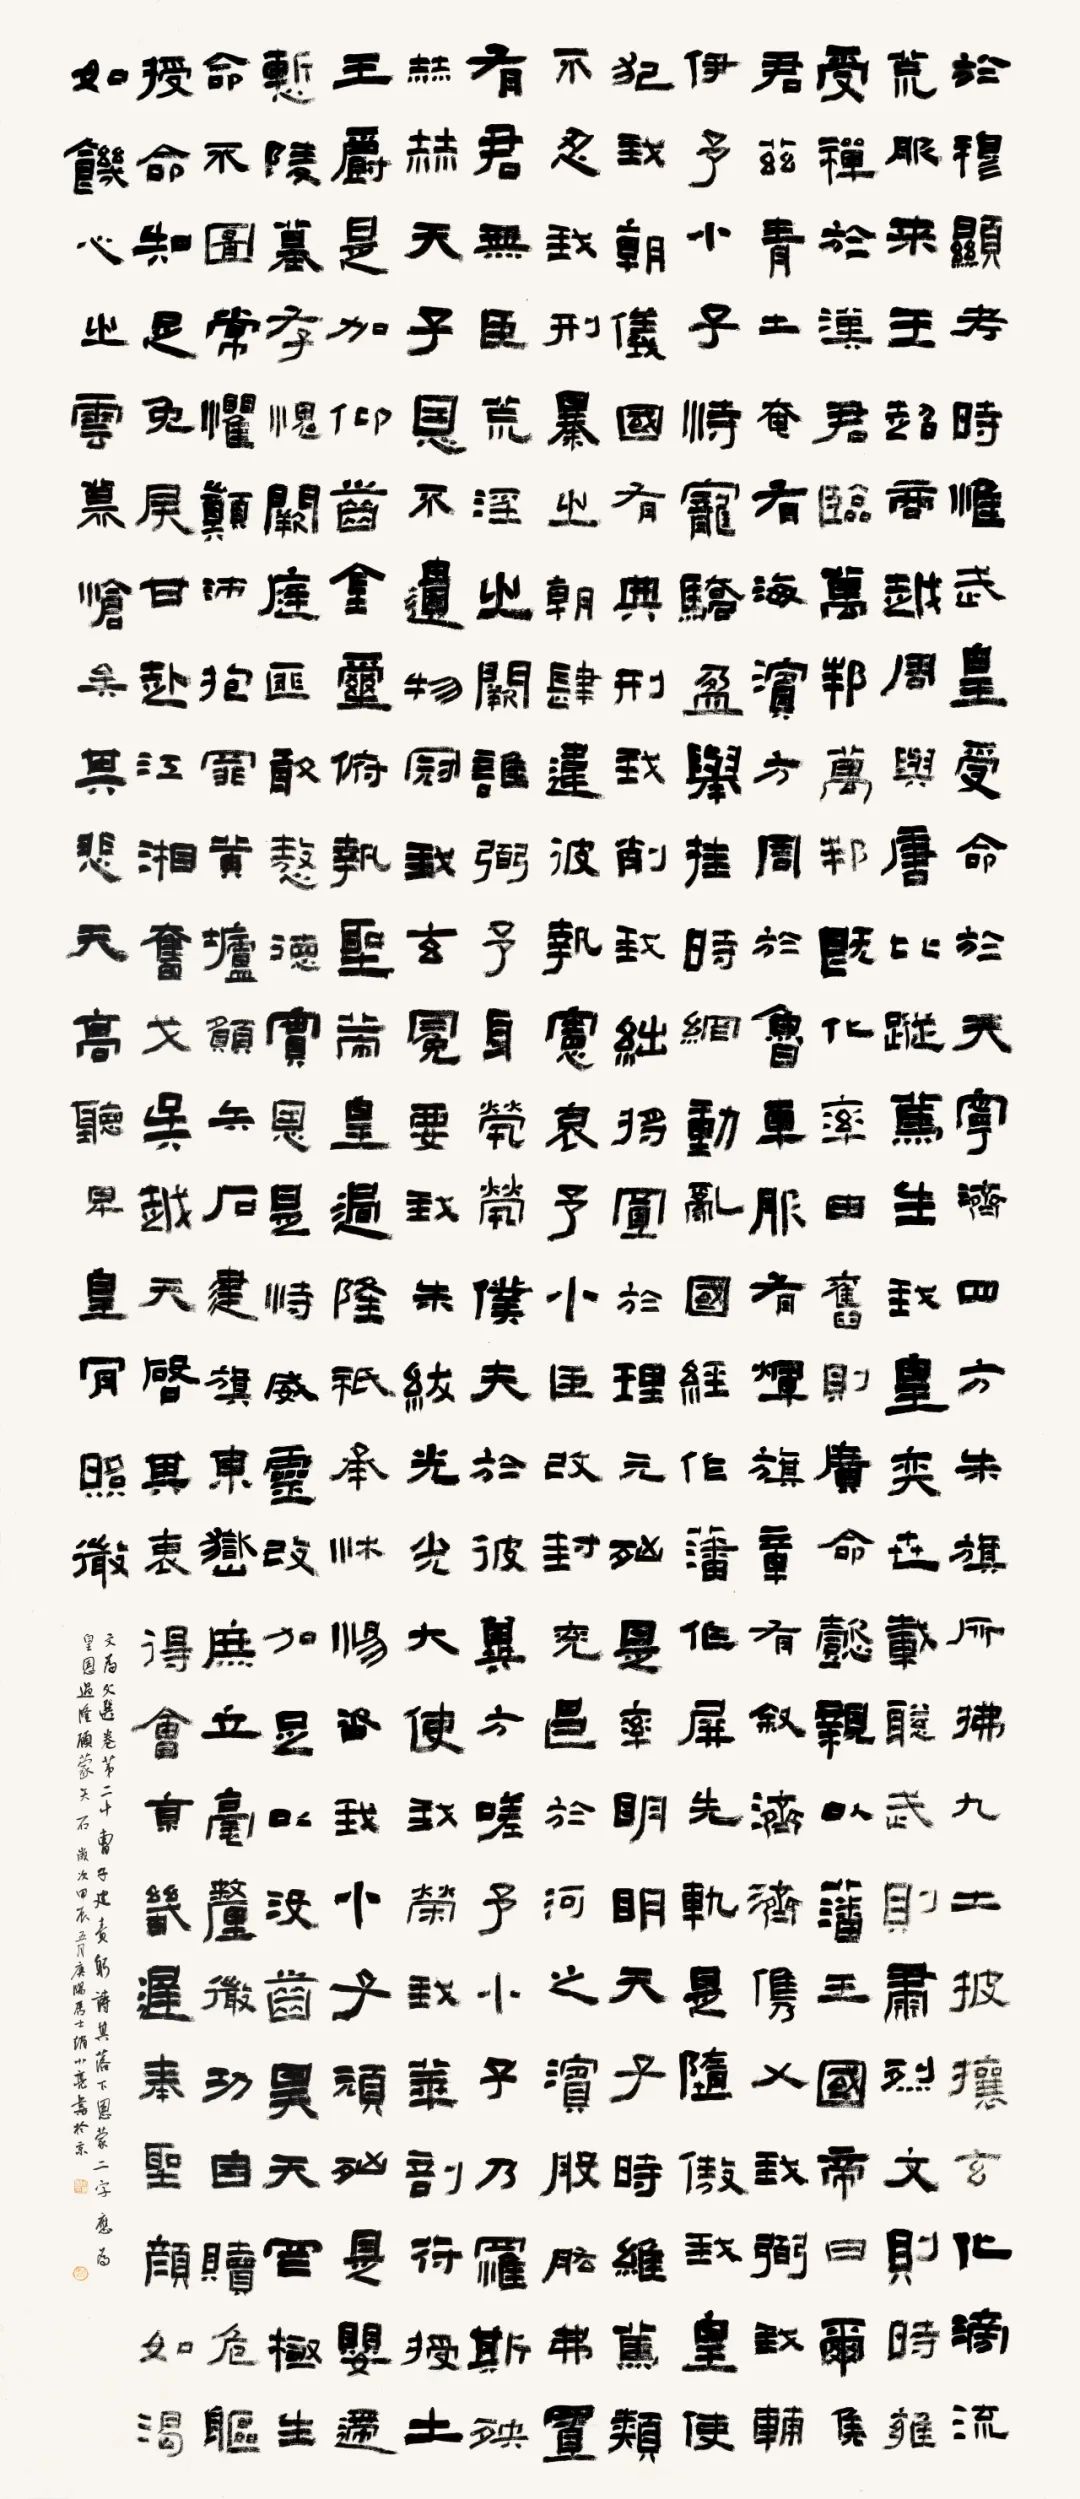 於穆顯考時惟武皇受命於天寧濟四方朱旗所拂九土披攘玄化滂流
荒服来王超商越周與唐比蹤篤生我皇奕世載聰武則肅烈文則時雍
受禪於漢君臨萬邦萬邦既化率由舊則廣命懿親以藩王國帝曰爾侯
君茲青土奄有海濱方周於魯車服有輝旗章有叙濟濟儁乂我弼我輔
伊予小子恃寵驕盈舉挂時網動亂國經作藩作屏先軌是隨傲我皇使
犯我朝儀國有典刑我削我絀將寘於理元凶是率明明天子時維篤類
不忍我刑暴之朝肆違彼執憲哀予小臣改封兖邑於河之濱股肱弗置
有君無臣荒淫之闕誰弼予身煢煢僕夫於彼冀方嗟予小子乃罹斯殃
赫赫天子恩不遺物冠我玄冕要我朱紱光光大使我榮我華剖符授土
王爵是加仰齒金璽俯執聖策皇過隆祗承怵惕咨我小子頑凶是嬰逝
慙陵墓存愧闕庭匪敢慠德實恩是恃威靈改加足以没齒昊天罔極生
命不圖常懼顛沛抱罪黄壚願矢石建旗東嶽庶立毫氂微功自贖危軀
授命知足免戾甘赴江湘奮戈吳越天啓其衷得會京畿遲奉聖顏如渴
如饑心之雲慕愴矣其悲天高聽卑皇肯照微
文為文選卷第二十曹子建責躬詩其落下恩蒙二字應為
皇恩過隆願蒙矢石歲次甲辰五月居士小書於京